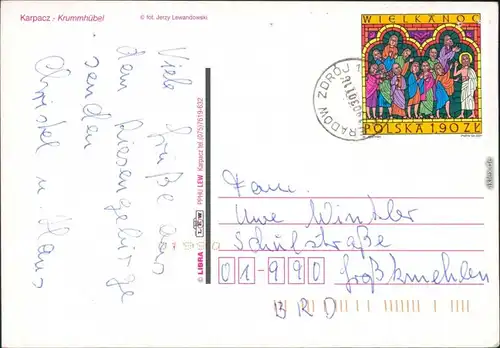 Karpacz - Krummhübel
© fot. Jerzy Lewandowski
Viele Grüße aus
dem Riesengebirge
senden
Christel u. Hans
© LIBRA PPHU LEW Karpacz tel. (075)7619-632
WIELKANOC
POLSKA 190ZŁ
ZDRÓJ 1
Fam.
Uwe Winkler
Schulstraße
01-990 Großkmehlen
BRD